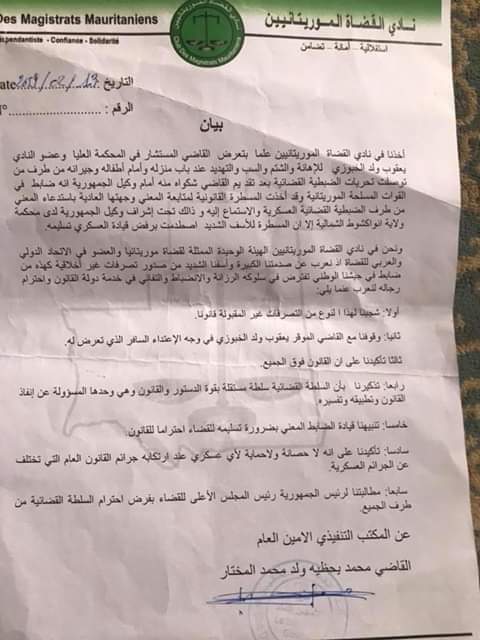 Des Magistrats Mauritaniens
épendantiste - Confiance - Solidarité
نادي القضاة الموريتانيين
استقلالية - أمانة - تضامن
Club des Magistrats Mauritaniens
التاريخ
الرقم : ............................
بيان
أخذنا في نادي القضاة الموريتانيين علما بتعرض القاضي المستشار في المحكمة العليا وعضو النادي
يعقوب ولد الخبوزي للإهانة والشتم والسب والتهديد عند باب منزله وأمام أطفاله وجيرانه من طرف من
توصلت تحريات الضبطية القضائية بعد تقديم القاضي شكواه منه أمام وكيل الجمهورية انه ضابط في
القوات المسلحة الموريتانية وقد أخذت المسطرة القانونية لمتابعة المعني وجهتها العادية باستدعاء المعني
من طرف الضبطية القضائية العسكرية والاستماع إليه و ذالك تحت إشراف وكيل الجمهورية لدى محكمة
ولاية انواكشوط الشمالية إلا إن المسطرة للأسف الشديد اصطدمت برفض قيادة العسكري تسليمه.
ونحن في نادي القضاة الموريتانيين الهيئة الوحيدة الممثلة لقضاة موريتانيا والعضو في الاتحاد الدولي
والعربي للقضاة اذ نعرب عن صدمتنا الكبيرة وأسفنا الشديد من صدور تصرفات غير أخلاقية كهذه من
ضابط في جيشنا الوطني نفترض في سلوكه الرزانة والانضباط والتفاني في خدمة دولة القانون واحترام
رجاله لنعرب عنما يلي:
أولا: شجبنا لهذا النوع من التصرفات غير المقبولة قانونا.
ثانيا: وقوفنا مع القاضي الموقر يعقوب ولد الخبوزي في وجه الإعتداء السافر الذي تعرض له.
ثالثا تأكيدنا على ان القانون فوق الجميع.
رابعا: تذكيرنا بأن السلطة القضائية سلطة مستقلة بقوة الدستور والقانون وهي وحدها المسؤولة عن إنفاذ
القانون وتطبيقه وتفسيره.
خامسا: تنبيهنا قيادة الضابط المعني بضرورة تسليمه للقضاء احتراما للقانون.
سادسا: تأكيدنا على انه لا حصانة ولاحماية لأي عسكري عند ارتكابه جرائم القانون العام التي تختلف
عن الجرائم العسكرية.
سابعا: مطالبتنا لرئيس الجمهورية رئيس المجلس الأعلى للقضاء بفرض احترام السلطة القضائية من
طرف الجميع.
عن المكتب التنفيذي الامين العام
القاضي محمد يحظيه ولد محمد المختار